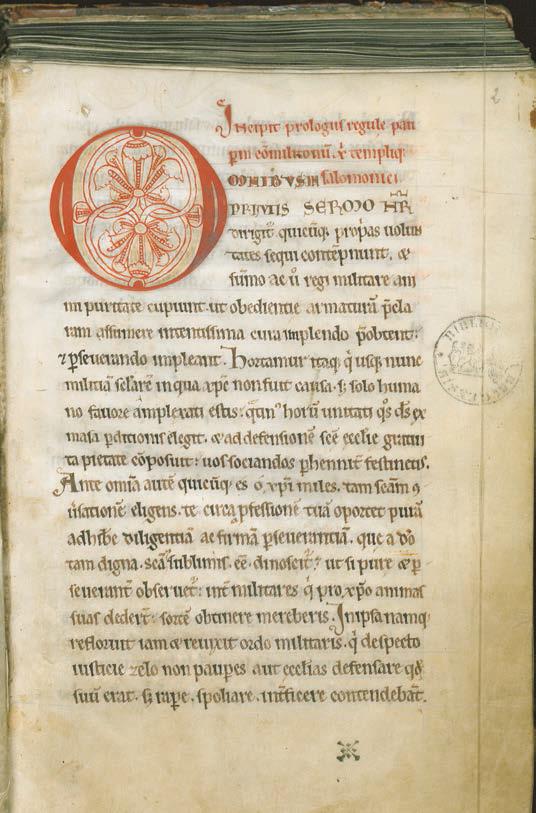 2
Incipit prologus regule pau
pum cōmilitonū x̄ templiq;
OMNIBVS IN salomonici
PRIMIS SERMO NR̄
dirigit̄ quicūq; p̄prias uolun
tates sequi contēpnunt. &
sūmo ac ū regi militare ani
mi puritate cupiunt. ut obedientie armaturā p̄cla
ram assumere intentissima cura implendo p̄obtent:
⁊ p̄seuerando impleant. Hortamur itaq; q̇ usq; nunc
militiā sc̄larē in qua xp̄c non fuit causa. sȝ solo huma
no fauore amplexati estis. quatin̄ horū unitati q̊s ds̄ ex
massa p̄ditionis elegit. & ad defensionē sc̄e eccl̄ie gratui
ta pietate cōposuit: uos sociandos p̄henniт̄ festinetis.
Ante om̄ia autē quicūq; es o xp̄i miles. tam sc̄am 9
ūsationē eligens. te circa p̄fessionē tuā oportet purā
adhibe diligentiā ac firmā p̄seuerantiā. que a dō
tam digna. sc̄a sublimis. eē. dinoscit̄: ut si pure & p̄
seuerant̄ obseruet̄: int̄ militares q̇ pro xp̄o animas
suas dedert̄. sortē obtinere mereberis. In ipsa namq;
refloruit iam & reuixit ordo militaris. q̇ despecto
iusticie zelo non paup̄es aut eccl̄ias defensare qd̄
suū erat. sȝ rap̄e. spoliare. int̄ficere contendebāt.